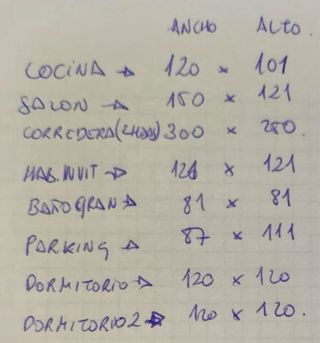 ANCHO ALTO.
COCINA → 120 × 101
SALON → 150 × 121
CORREDERA (2HOJAS) 300 × 250.
HAB. INVIT → 121 × 121
BAÑO GRAN → 81 × 81
PARKING → 87 × 111
DORMITORIO → 120 × 120
DORMITORIO 2 → 120 × 120.